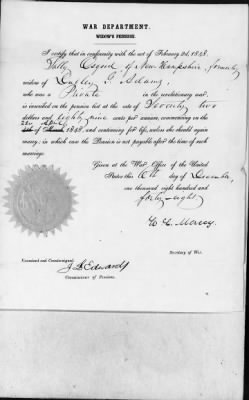 WAR DEPARTMENT.
WIDOW'S PENSION.
I certify that in conformity with the act of February 2d, 1848.
Osgood of New Hampshire, formerly
widow of Adams,
who was a Private in the revolutionary war,
is inscribed on the pension list at the rate of Seventy two
dollars and Eighty nine cents per annum, commencing on the
of 1848, and continuing for life, unless she should again
marry; in which case the Pension is not payable after the time of such
marriage.
Given at the War Office of the United
States this 6th day of December,
one thousand eight hundred and
forty-eight
W. L. Marcy
Secretary of War.
Examined and Countersigned,
J. L. Edwards
Commissioner of Pensions.